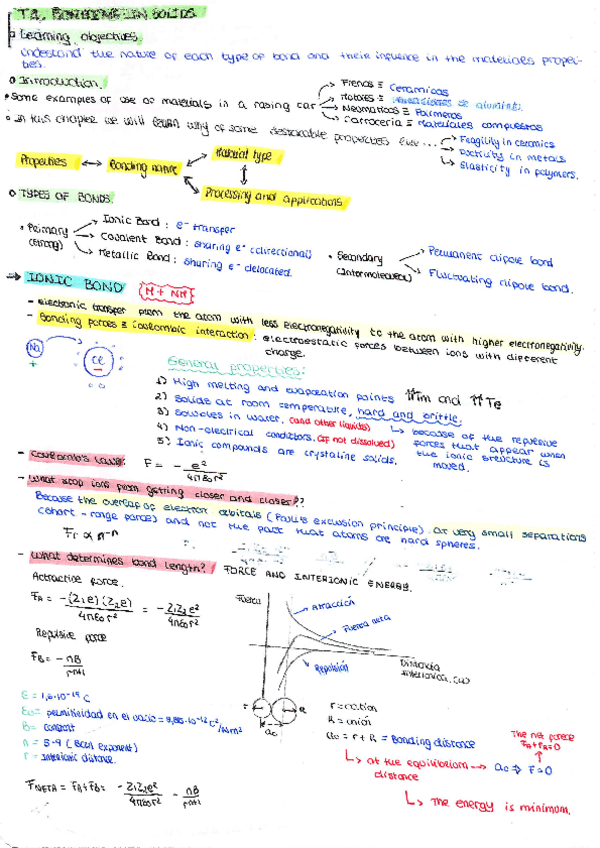 T1. BONDING IN SOLIDS
Learning objectives
Understand the nature of each type of bond and their influence in the materials proper-
ties.
Introduction.
Some examples of use of materials in a racing car
Frenos ≡ Cerámicas
Motores ≡ aluminio.
Neumáticos ≡ Polímeros
Carrocería ≡ Materiales compuestos
In this chapter we will learn why of some desirable properties like...
Fragility in ceramics
Ductivity in metals
Elasticity in polymers.
Properties
Bonding nature
Material type
Processing and applications
TYPES OF BONDS.
Primary (strong)
Ionic Bond: e⁻ transfer
Covalent Bond: sharing e⁻ (directional)
Metallic Bond: sharing e⁻ delocated.
Secondary (Intermolecular)
Permanent dipole bond
Fluctuating dipole bond.
→ IONIC BOND (M + NM)
- electronic transfer from the atom with less electronegativity to the atom with higher electronegativity.
- Bonding forces ≡ Coulombic interaction: electrostatic forces between ions with different
charge.
Na
Cl
+
-
General properties:
1) High melting and evaporation points ⇈Tm and ⇈Te
2) Solids at room temperature, hard and brittle.
3) Solubles in water. (and other liquids)
4) Non-electrical conductors. (if not dissolved)
5) Ionic compounds are crystaline solids.
↳ because of the repulsive
forces that appear when
the ionic structure is
moved.
- Coulomb's Law: F = - e²/4πε₀r²
- What stop ions from getting closer and closer??
Because the overlap of electron orbitals (Pauli's exclusion principle) at very small separations
(short-range force) and not the fact that atoms are hard spheres.
Fr ∝ r⁻ⁿ
- What determines bond length? FORCE AND INTERIONIC ENERGY.
Attractive force.
F_A = -(Z₁e)(Z₂e)/4πε₀r² = -Z₁Z₂e²/4πε₀r²
Repulsive force
F_B = - nB/rⁿ⁺¹
Fuerza
Atracción
Fuerza neta
Repulsión
Distancia
interionica. (a)
r
R
a₀
e = 1,6·10⁻¹⁹ C
ε₀ = permitividad en el vacío = 8,85·10⁻¹² C²/Nm²
B = constant
n = 5-9 (Born exponent)
r = interionic distance.
r = cation
R = anión
a₀ = r + R = Bonding distance
↳ at the equilibrium
distance
→ a₀ ⇒ F = 0
The net force
F_A + F_B = 0
↳ The energy is minimum.
F_NETA = F_A + F_B = - Z₁Z₂e²/4πε₀r² - nB/rⁿ⁺¹